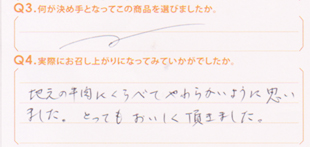 Q3.何が決め手となってこの商品を選びましたか。
Q4.実際にお召し上がりになってみていかがでしたか。
地元の牛肉にくらべてやわらかいように思い
ました。とってもおいしく頂きました。